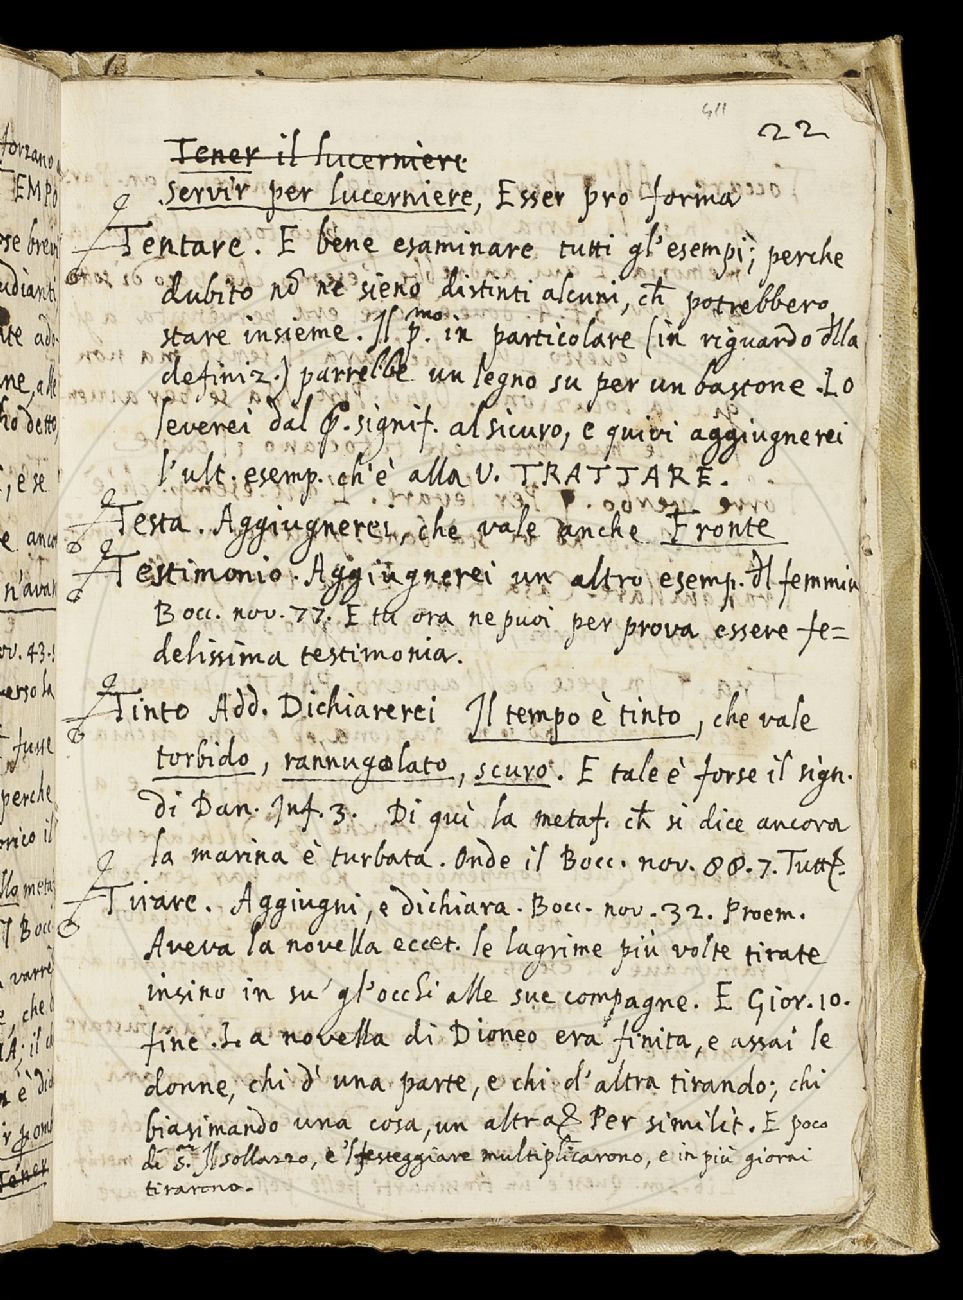 411
22
Tener il lucerniere
Servir per lucerniere, Esser pro forma
Tentare. E bene esaminare tutti gl'esempi; perche
dubito nõ ne sieno distinti alcuni, ch̃ potrebbero
stare insieme. Il p.mo in particolare (in riguardo dlla
definiz.) parrebbe un legno su per un bastone. Lo
leverei dal p. signif. al sicuro, e quivi aggiugnerei
l'ult. esemp. ch'è alla V. TRATTARE.
Testa. Aggiugnerei, che vale anche Fronte
Testimonio. Aggiugnerei un altro esemp. dl femmin
Bocc. nov. 77. E tu ora ne puoi per prova essere fe=
delissima testimonia.
Tinto Add. Dichiarerei Il tempo è tinto, che vale
torbido, rannugolato, scuro. E tale è forse il sign.
di Dan. Inf. 3. Di quì la metaf. ch̃ si dice ancora
la marina è turbata. Onde il Bocc. nov. 88. 7.
Tirare. Aggiugni, e dichiara. Bocc. nov. 32. Proem.
Aveva la novella eccet. le lagrime più volte tirate
insino in su' gl'occhi alle sue compagne. E Gior. 10.
fine. La novella di Dioneo era finita, e assai le
donne, chi d' una parte, e chi d'altra tirando; chi
biasimando una cosa, un altra Per similit. E poco
di s. Il sollazzo, e'l festeggiare multiplicarono, e in più giorni
tirarono.
forzano
TEMPO
ose brevi
udianti
ate ado
ne, alle
ho detto,
, é se
e anco
n'avan
ov. 43.
verso la
fusse
perche
orico il
llo meta
Bocc
varre
, che
A; il
n è did
Tener